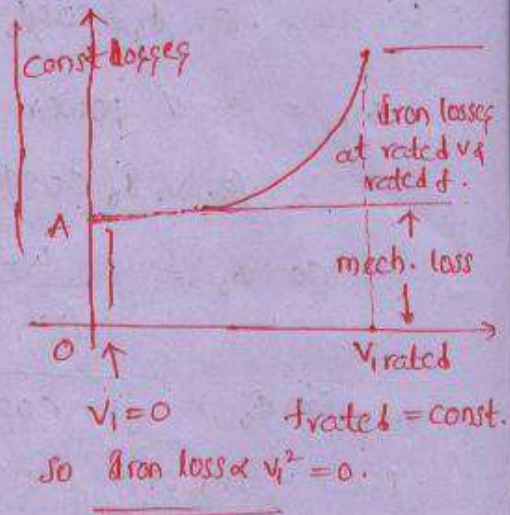 const losses
Iron losses
at rated v &
rated f.
A
mech. loss
O
V₁ rated
V₁ = 0
frated = const.
so Iron loss ∝ V₁² = 0.